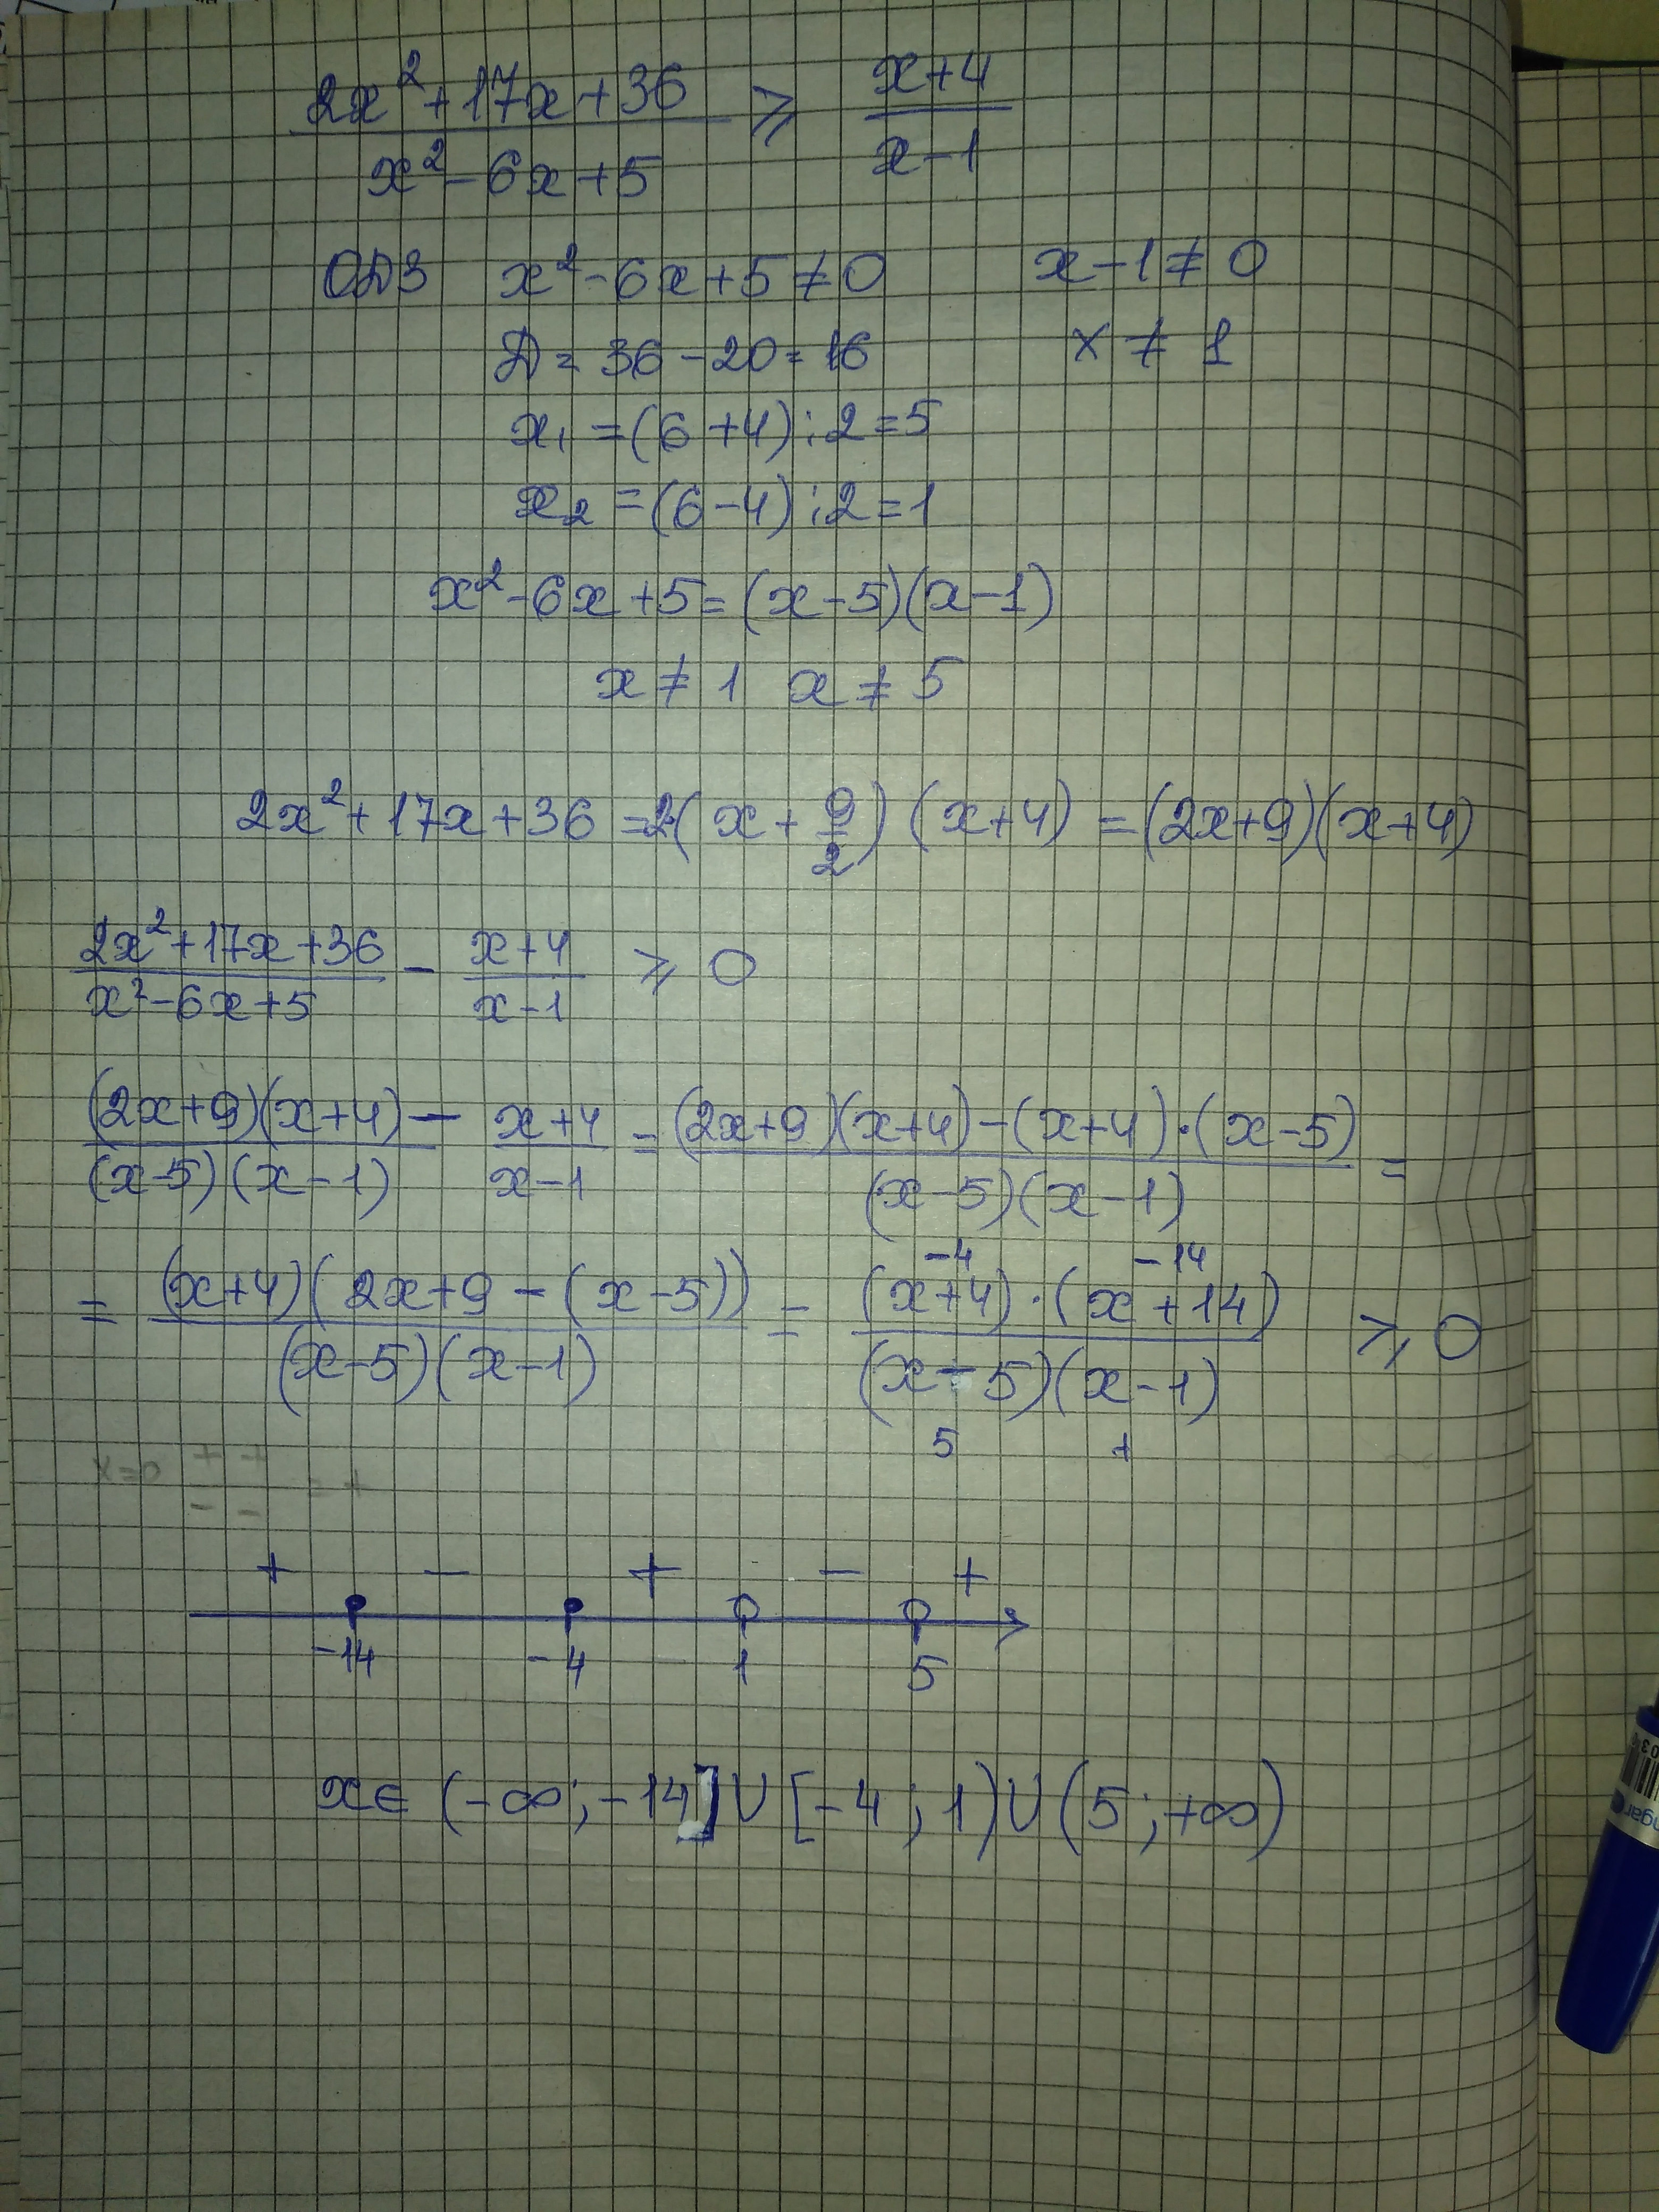 2x²+17x+36 / x²-6x+5 ⩾ x+4 / x-1
ОДЗ x²-6x+5≠0 x-1≠0
Д=36-20=16 x≠1
x₁=(6+4):2=5
x₂=(6-4):2=1
x²-6x+5=(x-5)(x-1)
x≠1 x≠5
2x²+17x+36=2(x+9/2)(x+4)=(2x+9)(x+4)
2x²+17x+36 / x²-6x+5 - x+4 / x-1 ⩾ 0
(2x+9)(x+4) / (x-5)(x-1) - x+4 / x-1 = (2x+9)(x+4)-(x+4)·(x-5) / (x-5)(x-1) =
-4 -14
= (x+4)(2x+9-(x-5)) / (x-5)(x-1) = (x+4)·(x+14) / (x-5)(x-1) ⩾ 0
5 1
+ - + - +
-14 -4 1 5
x∈(-∞;-14]∪[-4;1)∪(5;+∞)